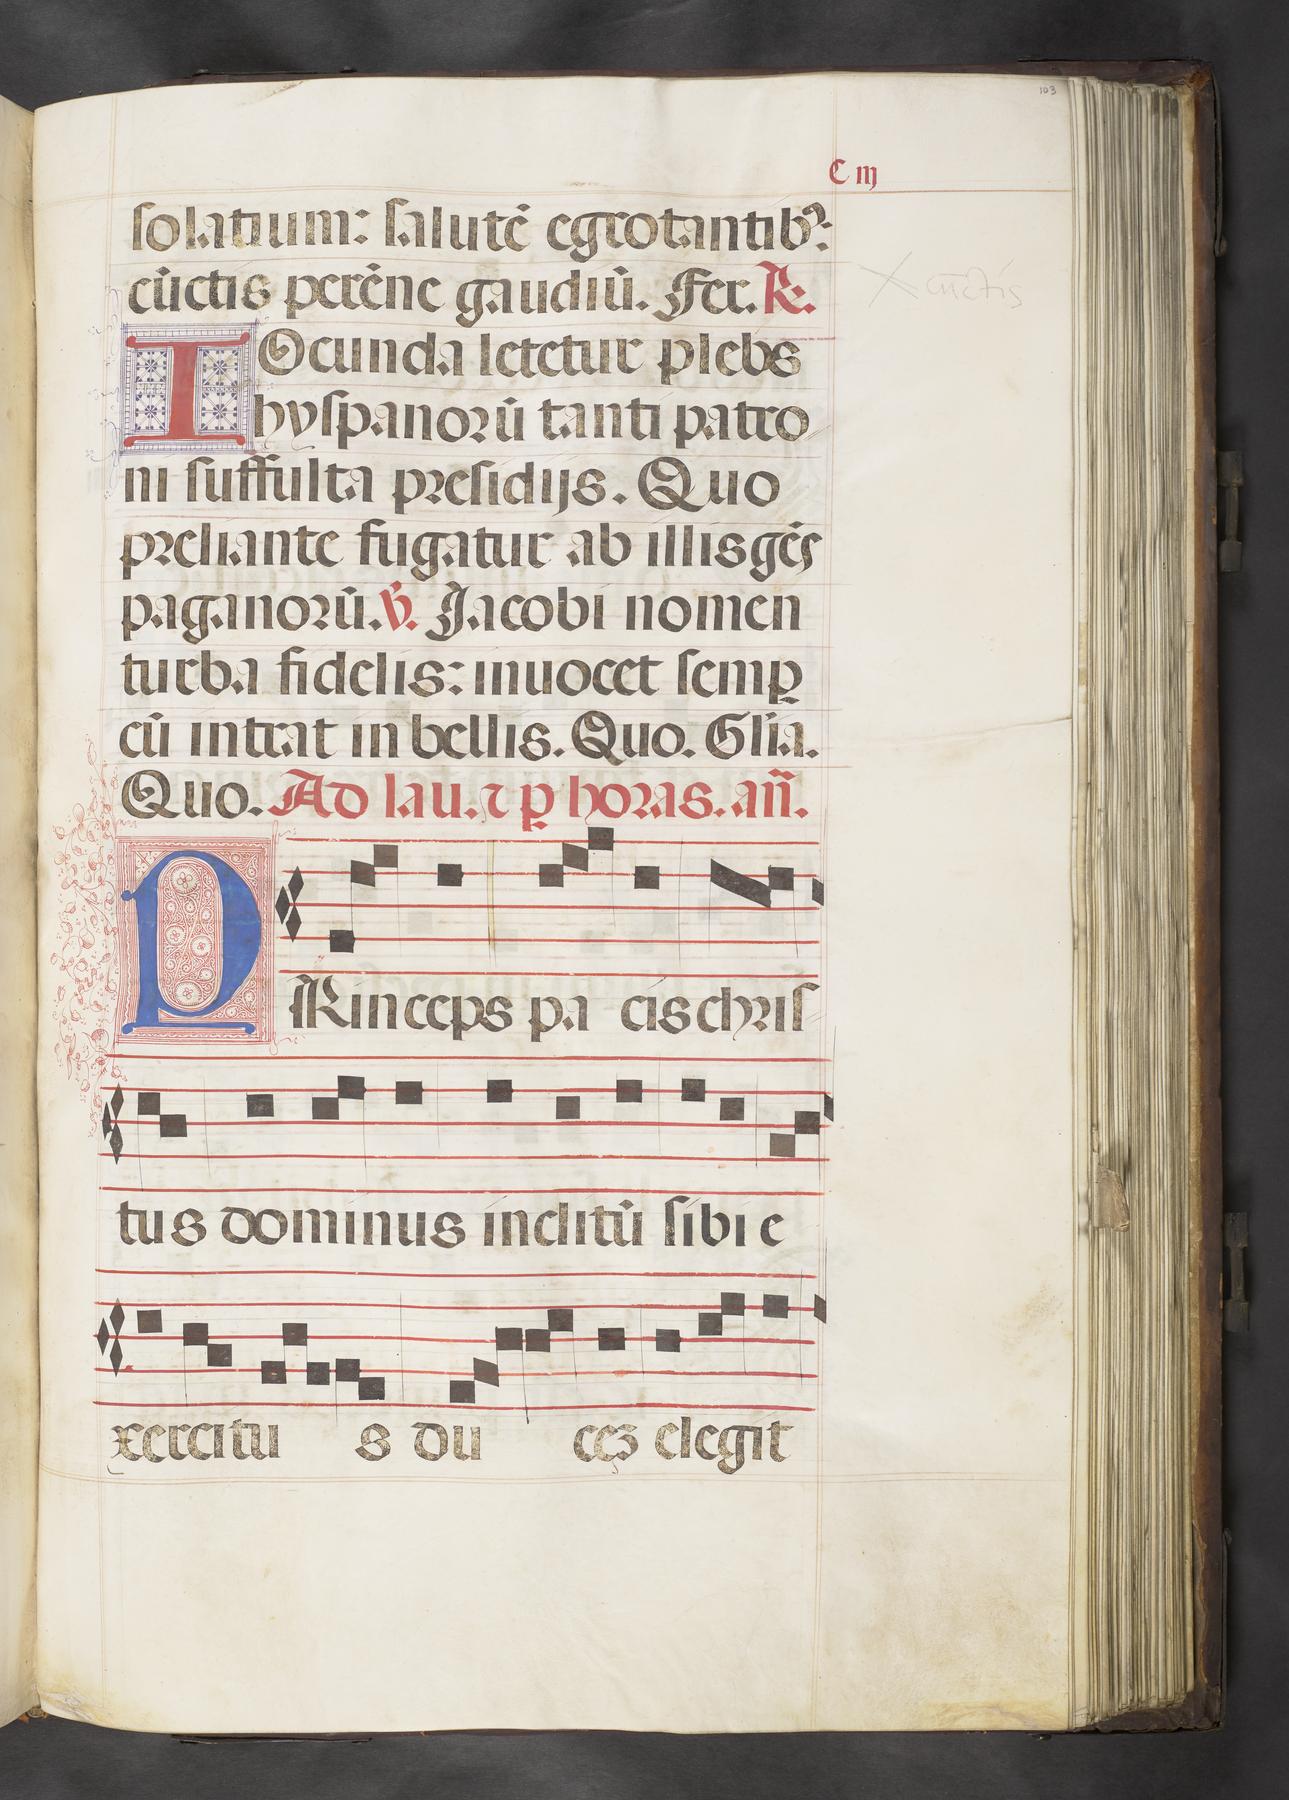 103
C iij
solatium: salutē egrotantibꝰ:
cūctis perēne gaudiū. Fer. ℟.
X cūctis
IOcunda letetur plebs
hyspanorū tanti patro
ni suffulta presidijs. Quo
preliante fugatur ab illis gēs
paganorū. ℣. Jacobi nomen
turba fidelis: inuocet semꝑ
cū intrat in bellis. Quo. Gl̄ia.
Quo. Ad lau. ⁊ ꝑ horas. an̄.
PRinceps pa cis chris
tus dominus inclitū sibi e
xercitu s du cez elegit